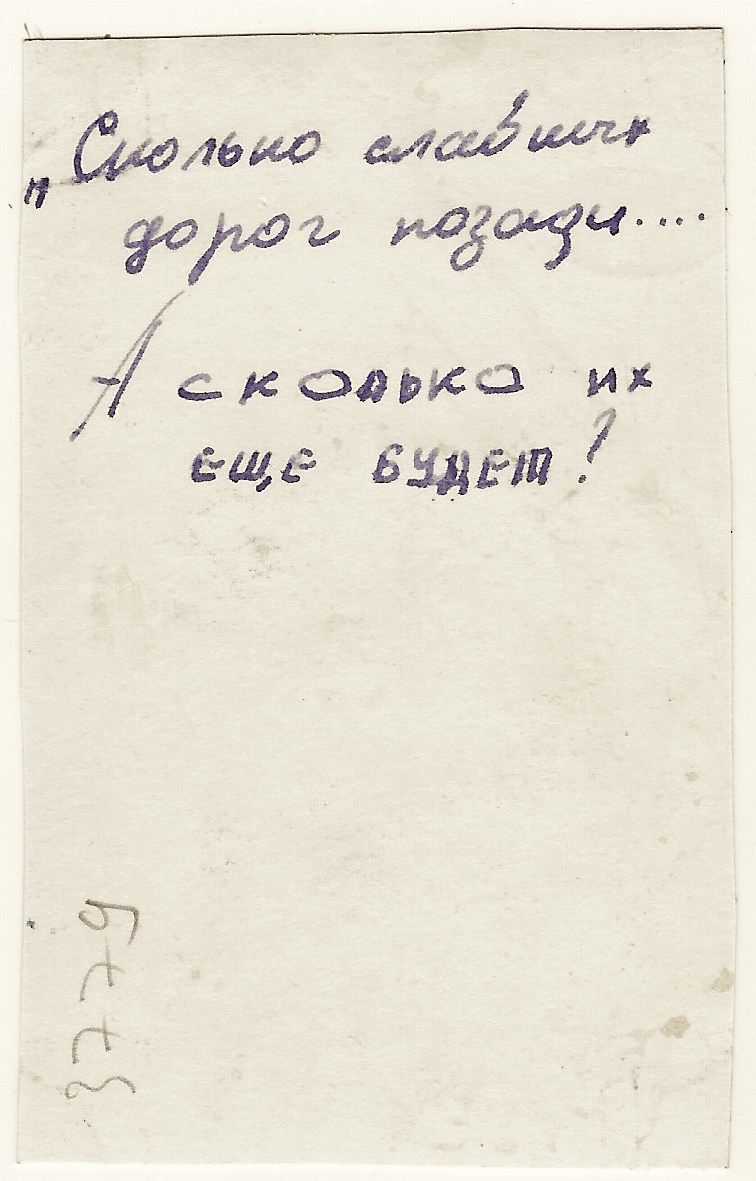 „Сколько славных
дорог позади....
А сколько их
еще будет?
3779